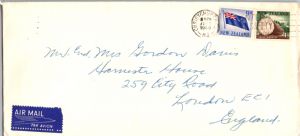 NEW ZEALAND
NEW ZEALAND
Mr and Mrs Gordon Davis
House
259 City Road
London EC1
England.
AIR MAIL
PAR AVION